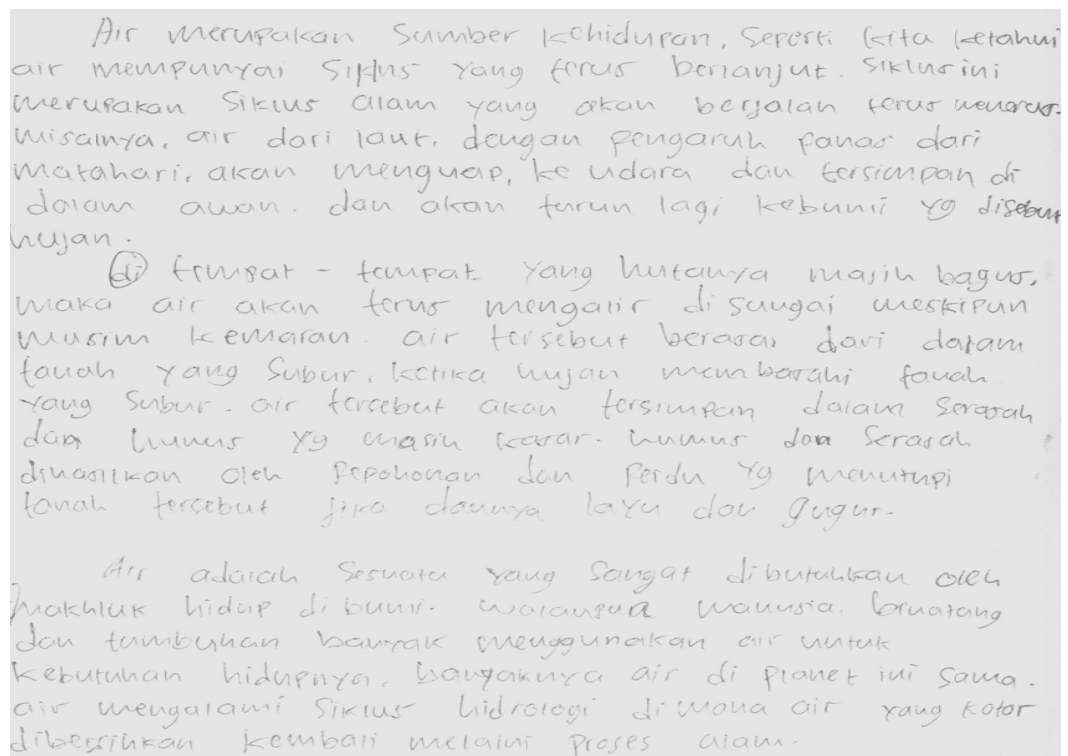 Air merupakan sumber kehidupan, seperti kita ketahui
air mempunyai siklus yang terus berlanjut. siklus ini
merupakan siklus alam yang akan berjalan terus menerus.
misalnya, air dari laut, dengan pengaruh panas dari
matahari, akan menguap, ke udara dan tersimpan di
dalam awan. dan akan turun lagi kebumi yg disebut
hujan.
di tempat - tempat yang hutanya masih bagus,
maka air akan terus mengalir di sungai meskipun
musim kemaran. air tersebut berasal dari dalam
tanah yang subur, ketika hujan membasahi tanah
yang subur. air tersebut akan tersimpan dalam serasah
dan humus yg masih kasar. humus dan serasah
dihasilkan oleh pepohonan dan perdu yg menutupi
tanah tersebut jika daunya layu dan gugur.
Air adalah sesuatu yang sangat dibutuhkan oleh
makhluk hidup di bumi. walaupun manusia, binatang
dan tumbuhan banyak menggunakan air untuk
kebutuhan hidupnya, banyaknya air di planet ini sama.
air mengalami siklus hidrologi dimana air yang kotor
dibersihkan kembali melalui proses alam.